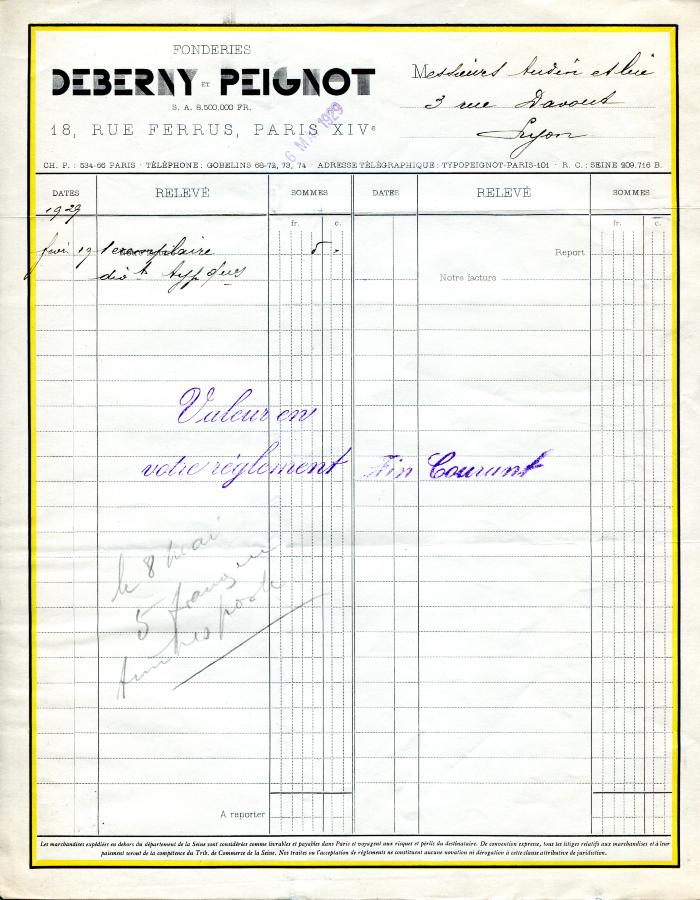 FONDERIES
DEBERNY ET PEIGNOT
S. A. 8,500,000 FR.
18, RUE FERRUS, PARIS XIVe
6 MAI 1929
Messieurs Audin et Cie
3 rue Davout
Lyon
CH. P. : 534-66 PARIS · TÉLÉPHONE : GOBELINS 68-72, 73, 74 · ADRESSE TÉLÉGRAPHIQUE : TYPOPEIGNOT-PARIS-101 · R. C. : SEINE 209.716 B.
DATES RELEVÉ SOMMES DATES RELEVÉ SOMMES
1929
fr. c. fr. c.
fevr 19 1 exemplaire 5 -
Report
Notre facture
Valeur en
votre règlement Fin Courant
le 8 mai
5 francs en
timbres poste
A reporter
Les marchandises expédiées en dehors du département de la Seine sont considérées comme livrables et payables dans Paris et voyagent aux risques et périls du destinataire. De convention expresse, tous les litiges relatifs aux marchandises et à leur
paiement seront de la compétence du Trib. de Commerce de la Seine. Nos traites ou l'acceptation de règlements ne constituent aucune novation ni dérogation à cette clause attributive de juridiction.